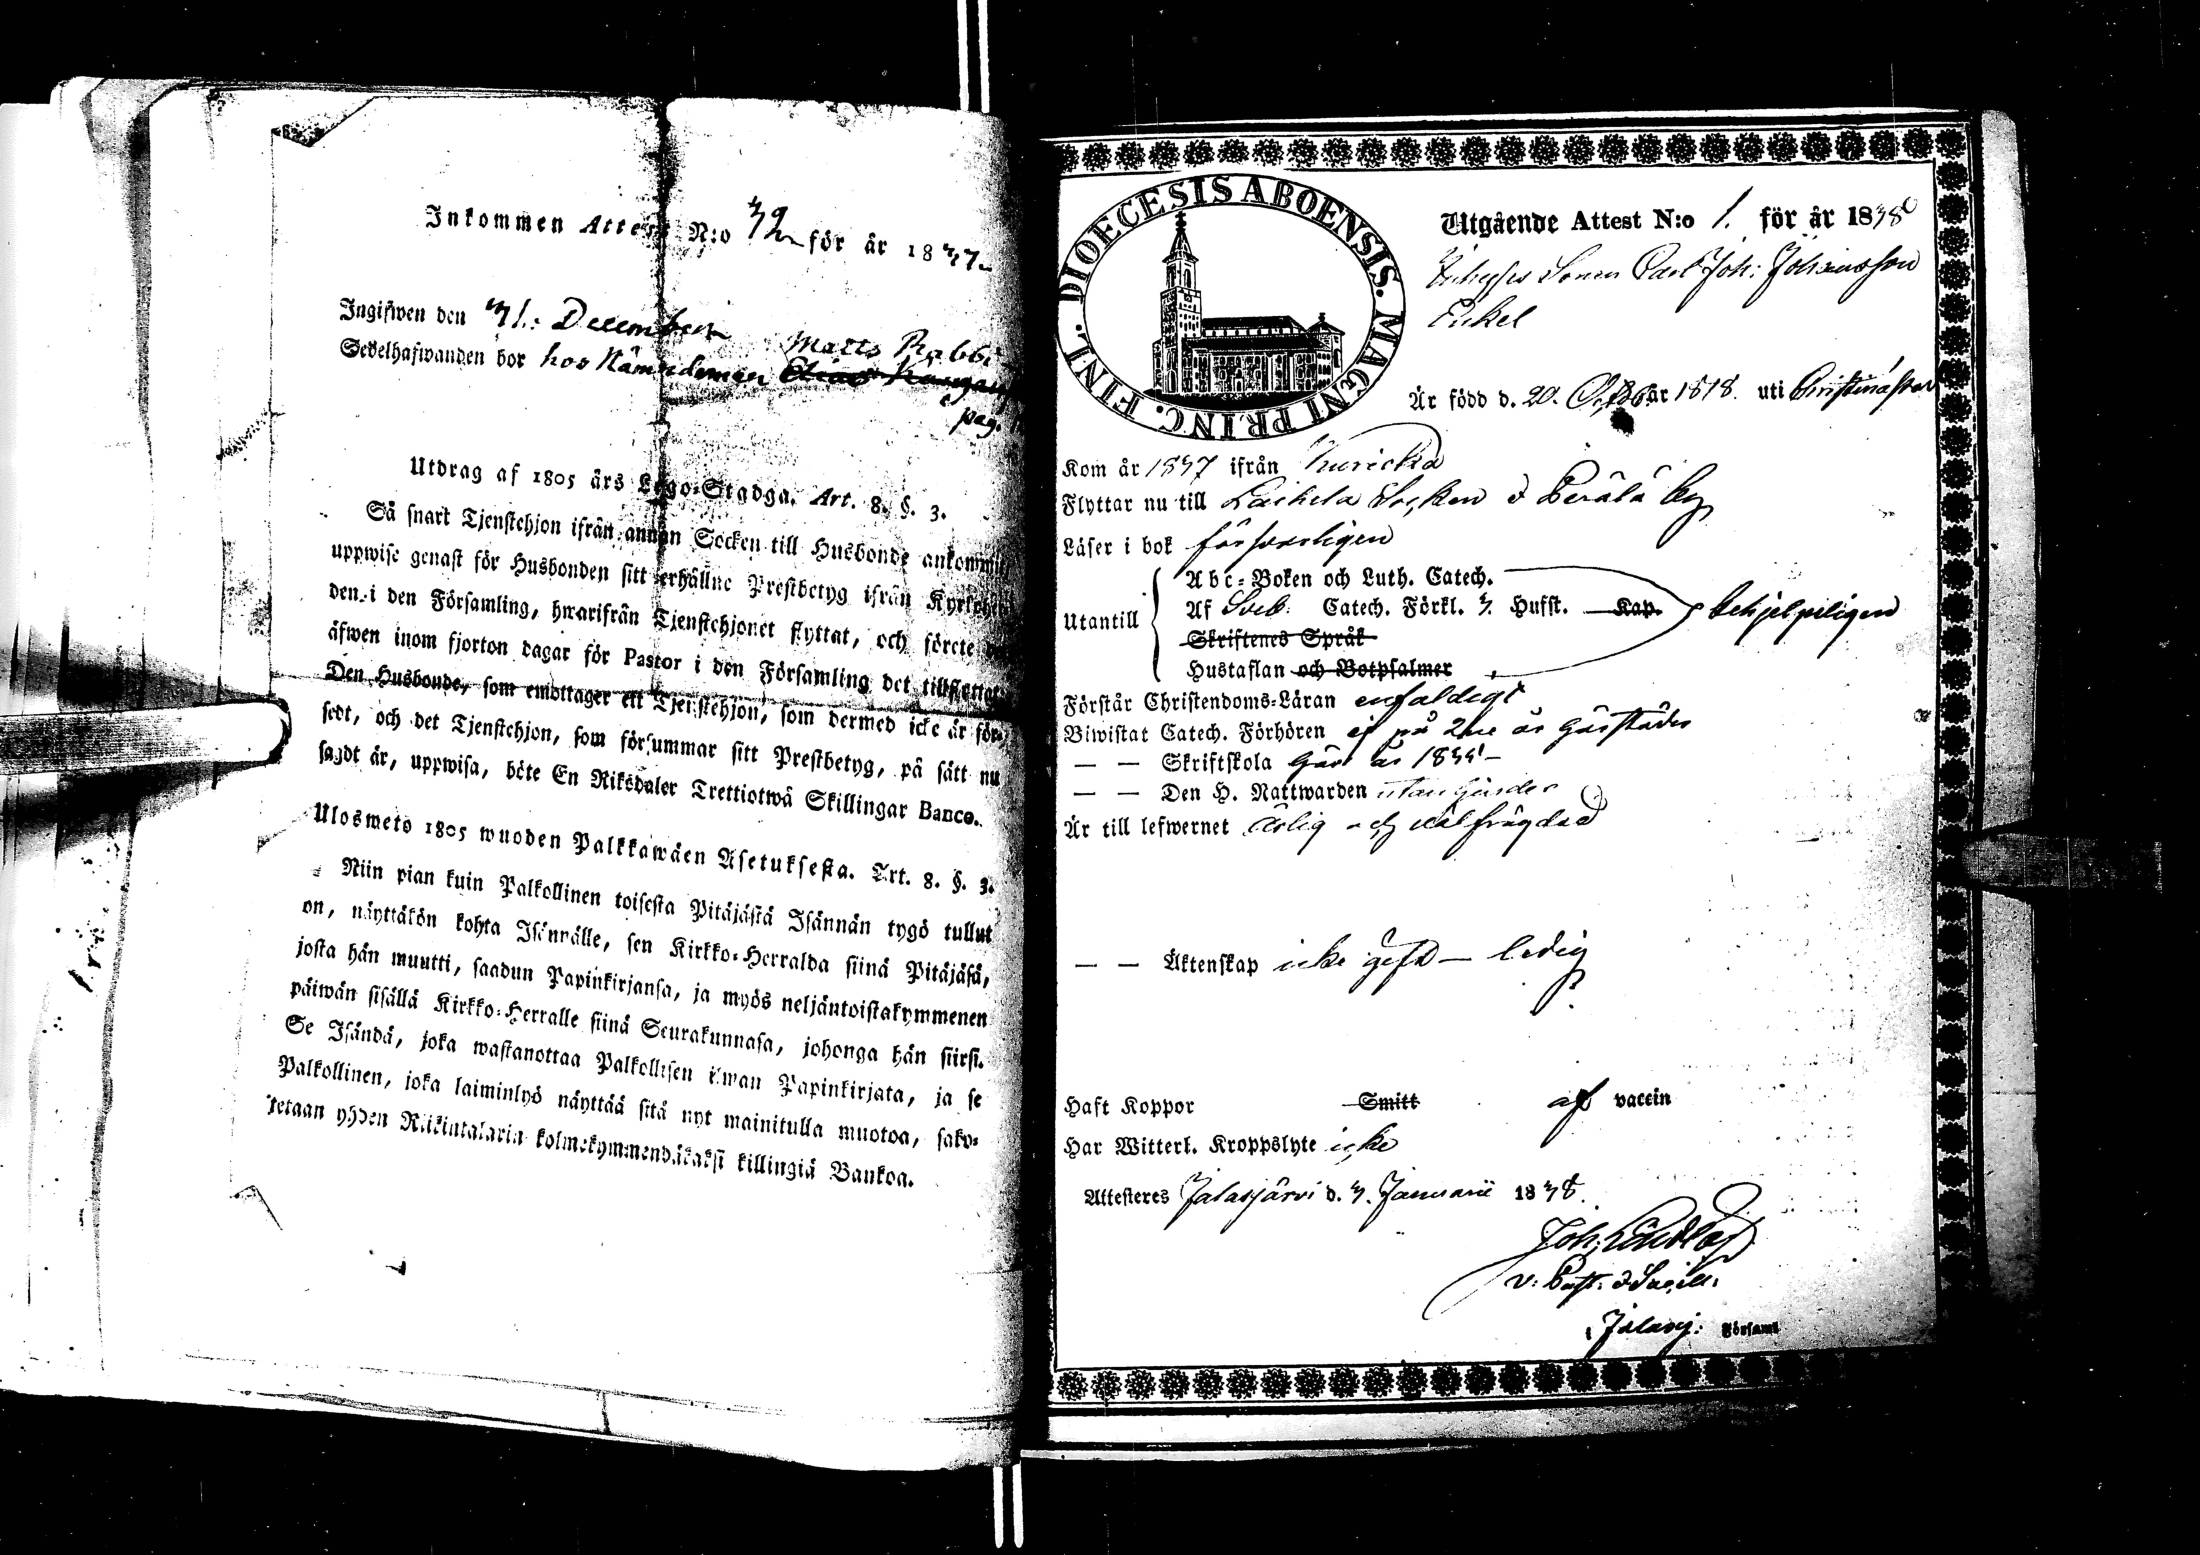 Inkommen Attest N:o 32 för år 1837.
Ingifwen den 31: December
Sedelhafwanden bor hos Nämndeman Matts Rabbi
pag.
Utdrag af 1805 års Lego-Stadga. Art. 8. §. 3.
Så snart Tjenstehjon ifrån annan Socken till Husbonde ankommit
uppwise genast för Husbonden sitt erhållne Prestbetyg ifrån
den i den Församling, hwarifrån Tjenstehjonet flyttat, och förete
äfwen inom fjorton dagar för Pastor i den Församling det
Den Husbonde, som emottager ett Tjenstehjon, som dermed icke är för-
sedt, och det Tjenstehjon, som försummar sitt Prestbetyg, på sätt nu
sagdt är, uppwisa, böte En Riksdaler Trettiotwå Skillingar Banco.
Ulosweto 1805 wuoden Palkkawäen Asetuksesta. Art. 8. §. 3.
Niin pian kuin Palkollinen toisesta Pitäjästä Isännän tygö tullut
on, näyttäkön kohta Isännälle, sen Kirkko-Herralda siinä Pitäjäsä,
josta hän muutti, saadun Papinkirjansa, ja myös neljäntoistakymmenen
päiwän sisällä Kirkko-Herralle siinä Seurakunnasa, johonga hän siirsi.
Se Isändä, joka wastanottaa Palkollisen ilman Papinkirjata, ja se
Palkollinen, joka laiminlyö näyttää sitä nyt mainitulla muotoa, sako-
tetaan yhden Riikintalarin kolmekymmendäkaksi killingiä Bankoa.
FINL. DIOECESIS ABOENSIS. MAGNI PRINC.
Utgående Attest N:o 1. för år 1838
Sonen Carl Joh: Johansson
Enkel
Är född d. 20. Octob år 1818. uti
Kom år 1837 ifrån Kuricka
Flyttar nu till Laihela Socken o Perälä by
Läser i bok försvarligen
Utantill
Abc-Boken och Luth. Catech.
Af Sveb. Catech. Förkl. 3. Hufst. Kap.
Skriftenes Språk
Hustaflan och Botpsalmer
behjelpeligen
Förstår Christendoms-Läran enfaldigt
Biwistat Catech. Förhören ej på 2ne år
— — Skriftskola
— — Den H. Nattwarden
Är till lefwernet ärlig och välfrägdad
— — Äktenskap icke gift — ledig
Haft Koppor Smitt af vaccin
Har Witterl. Kroppslyte icke
Attesteres Jalasjärvi d. 3. Januarii 1838.
Joh.
v: Past:
i Jalasj: Församl